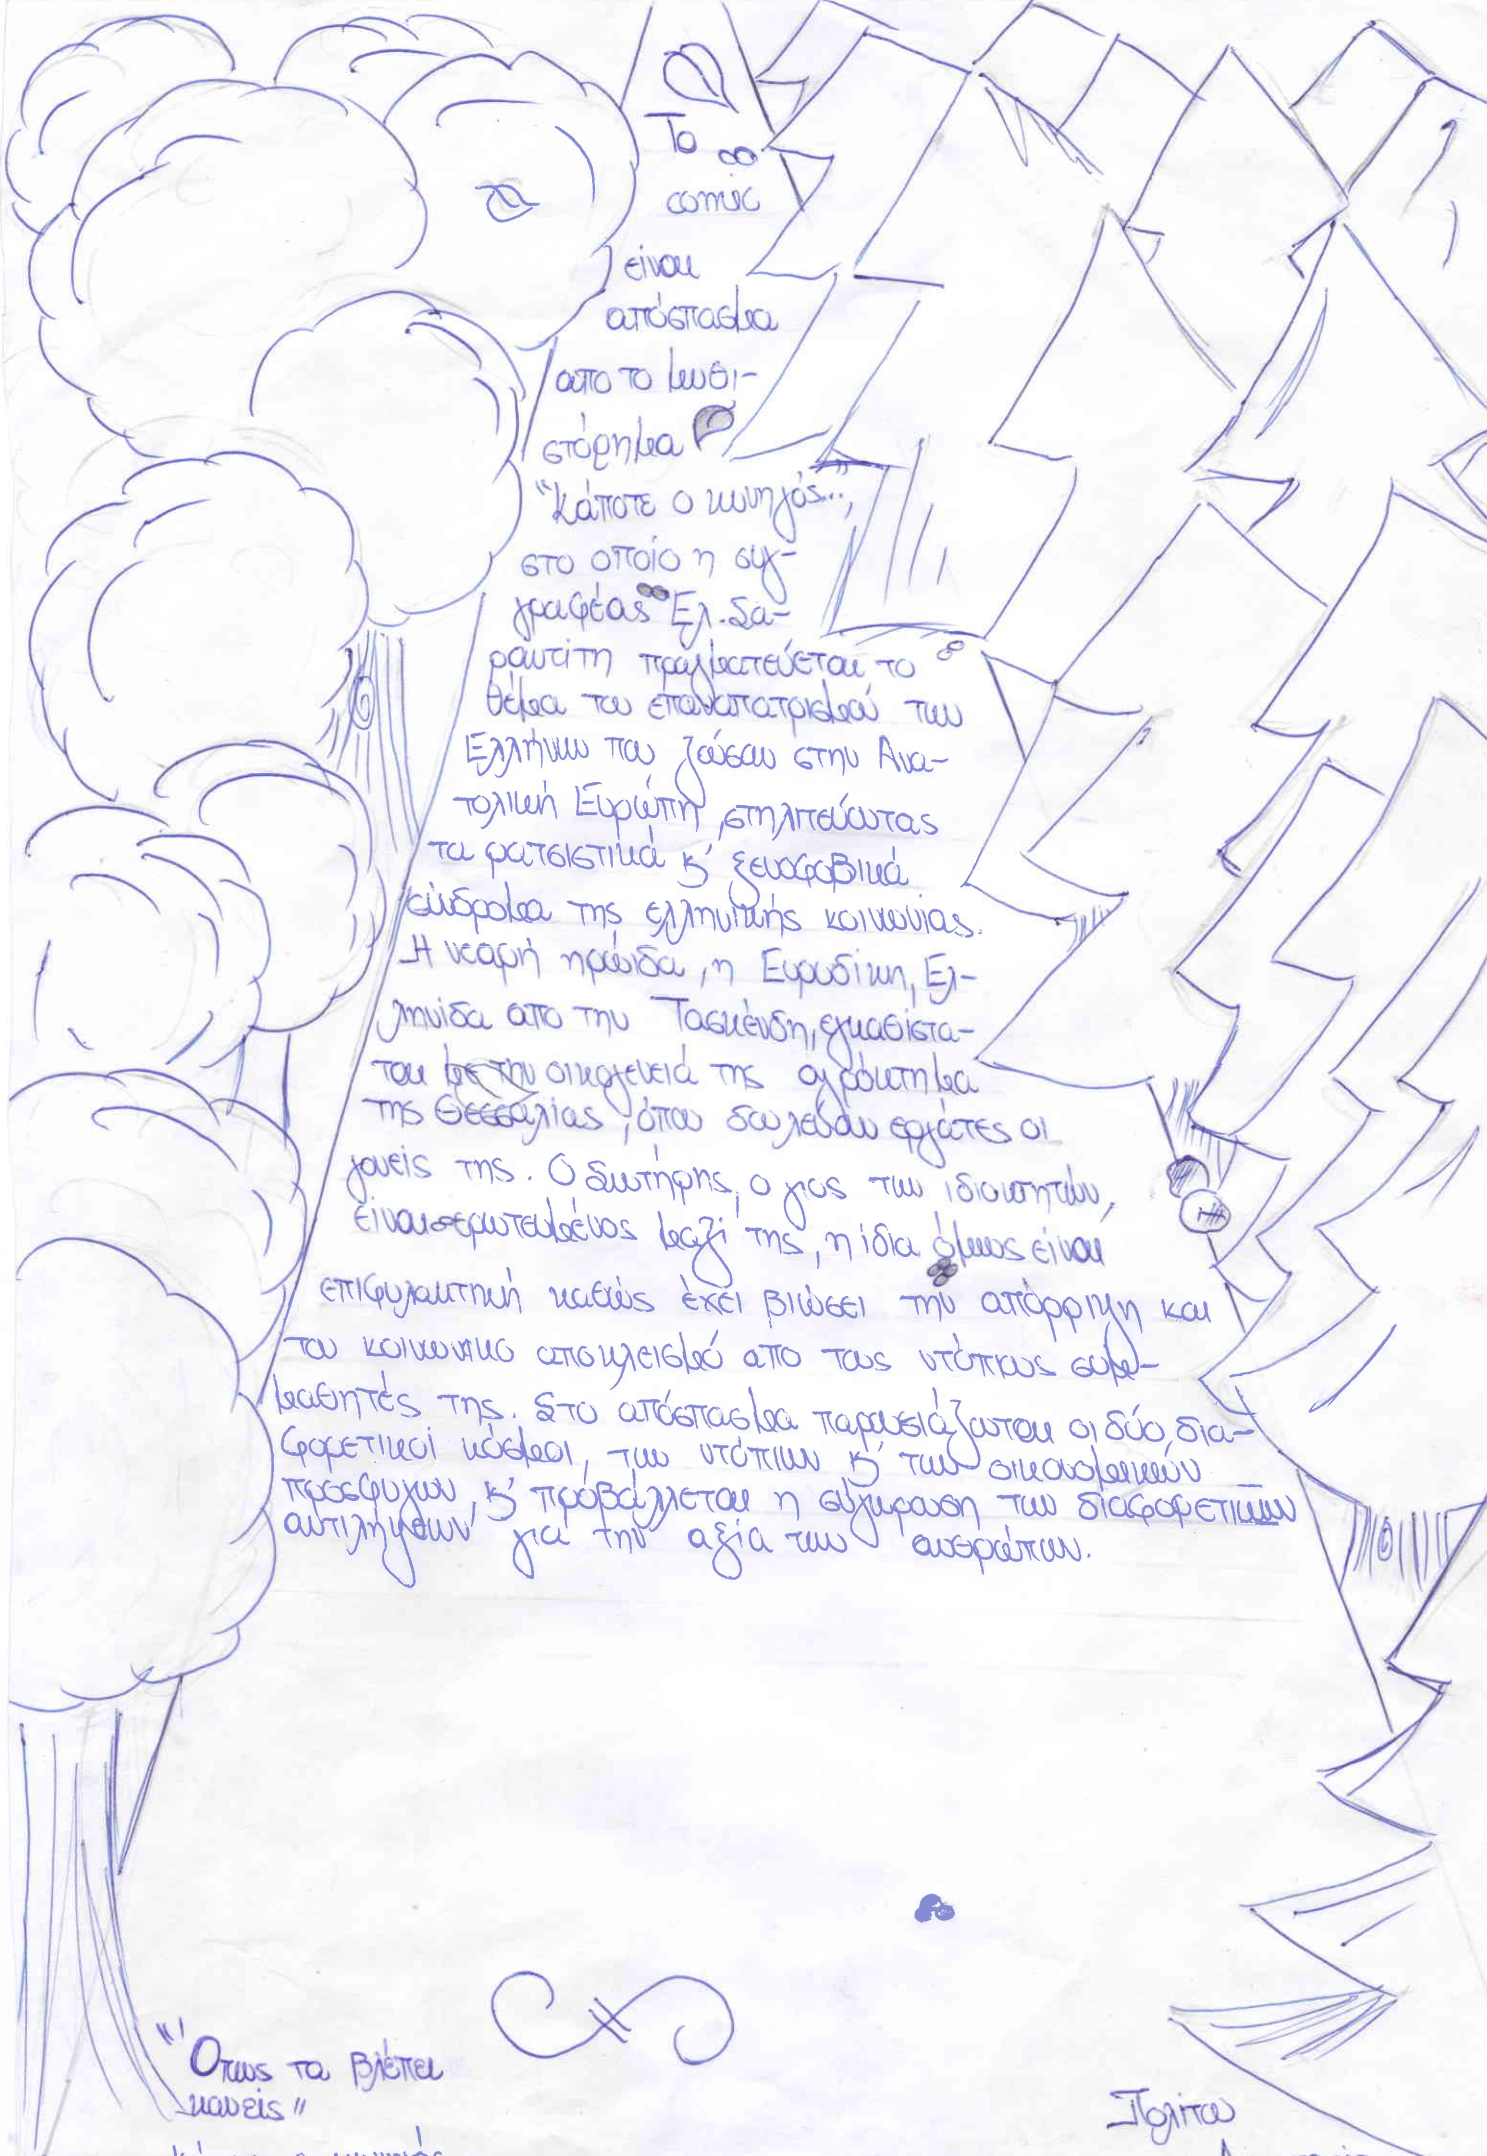 Το
comic
είναι
απόσπασμα
απο το μυθι-
στόρημα
"Κάποτε ο κυνηγός...",
στο οποίο η συγ-
γραφέας Ελ. Σα-
ραντίτη πραγματεύεται το
θέμα του επαναπατρισμού των
Ελλήνων που ζούσαν στην Ανα-
τολική Ευρώπη, στηλιτεύοντας
τα ρατσιστικά κ' ξενοφοβικά
σύνδρομα της ελληνικής κοινωνίας.
Η νεαρή ηρωίδα, η Ευρυδίκη, Ελ-
ληνίδα απο την Τασκένδη, εγκαθίστα-
ται με την οικογένειά της αγρόκτημα
της Θεσσαλίας, όπου δουλεύουν εργάτες οι
γονείς της. Ο Σωτήρης, ο γιος των ιδιοκτητών,
είναι ερωτευμένος μαζί της, η ίδια όμως είναι
επιφυλακτική καθώς έχει βιώσει την απόρριψη και
τον κοινωνικο αποκλεισμό απο τους ντόπιους συμ-
μαθητές της. Στο απόσπασμα παρουσιάζονται οι δύο δια-
φορετικοί κόσμοι, των ντόπιων κ' των οικονομικών
προσφύγων, κ' προβάλλεται η σύγκρουση των διαφορετικών
αντιλήψεων για την αξία των ανθρώπων.
"Όπως τα βλέπει
κανείς"
Πολίτου